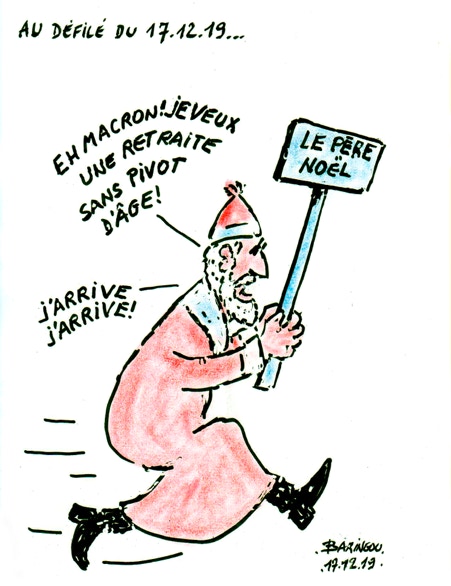 AU DÉFILÉ DU 17.12.19...
EH MACRON! JE VEUX
UNE RETRAITE
SANS PIVOT
D'ÂGE!
LE PÈRE
NOËL
J'ARRIVE
J'ARRIVE!
BARINGOU
.17.12.19.